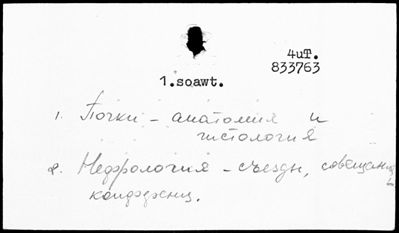 4uT.
833763
1.soawt.
1. Почки - анатомия и
гистология
2. Нефрология - съезды, совещания,
конференц.